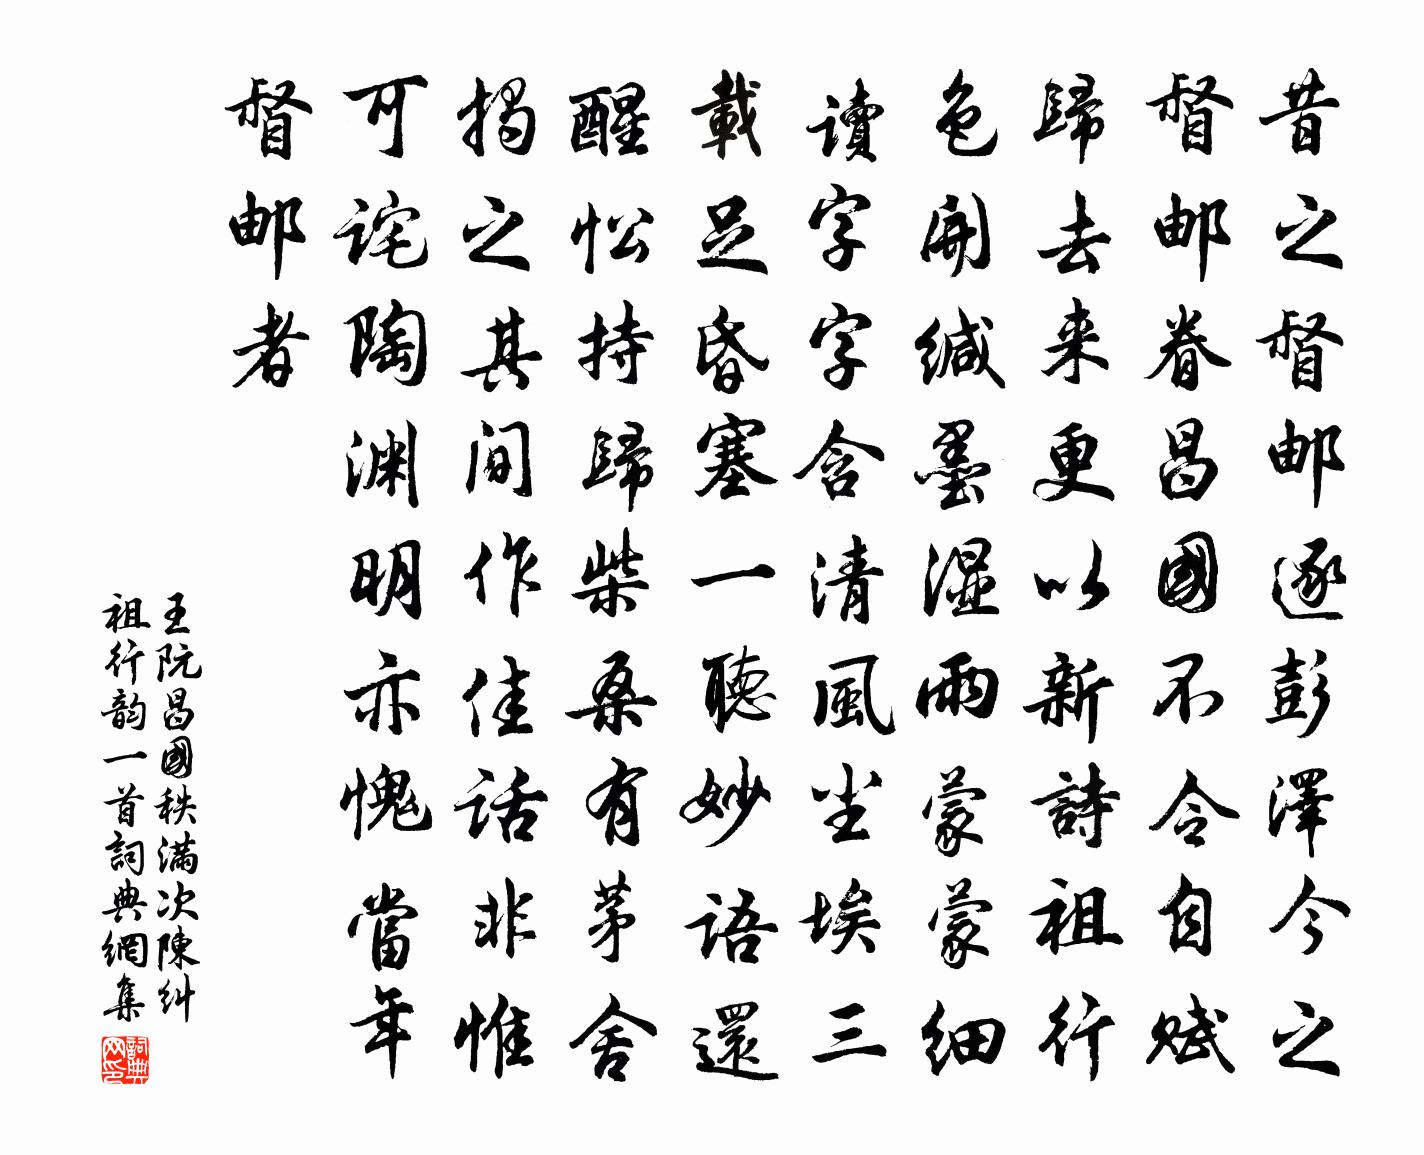 昔之督邮逐彭澤今之
督邮眷昌國不令自赋
歸去来更以新詩祖行
色開缄墨湿雨蒙蒙细
讀字字含清風坐埃三
載足昏塞一聽妙语還
醒忪持歸柴桑有茅舍
揭之其间作佳话非惟
可诧陶渊明亦愧當年
督邮者
王阮昌國秩满次陳糾
祖行韵一首詞典網集
詞典网印